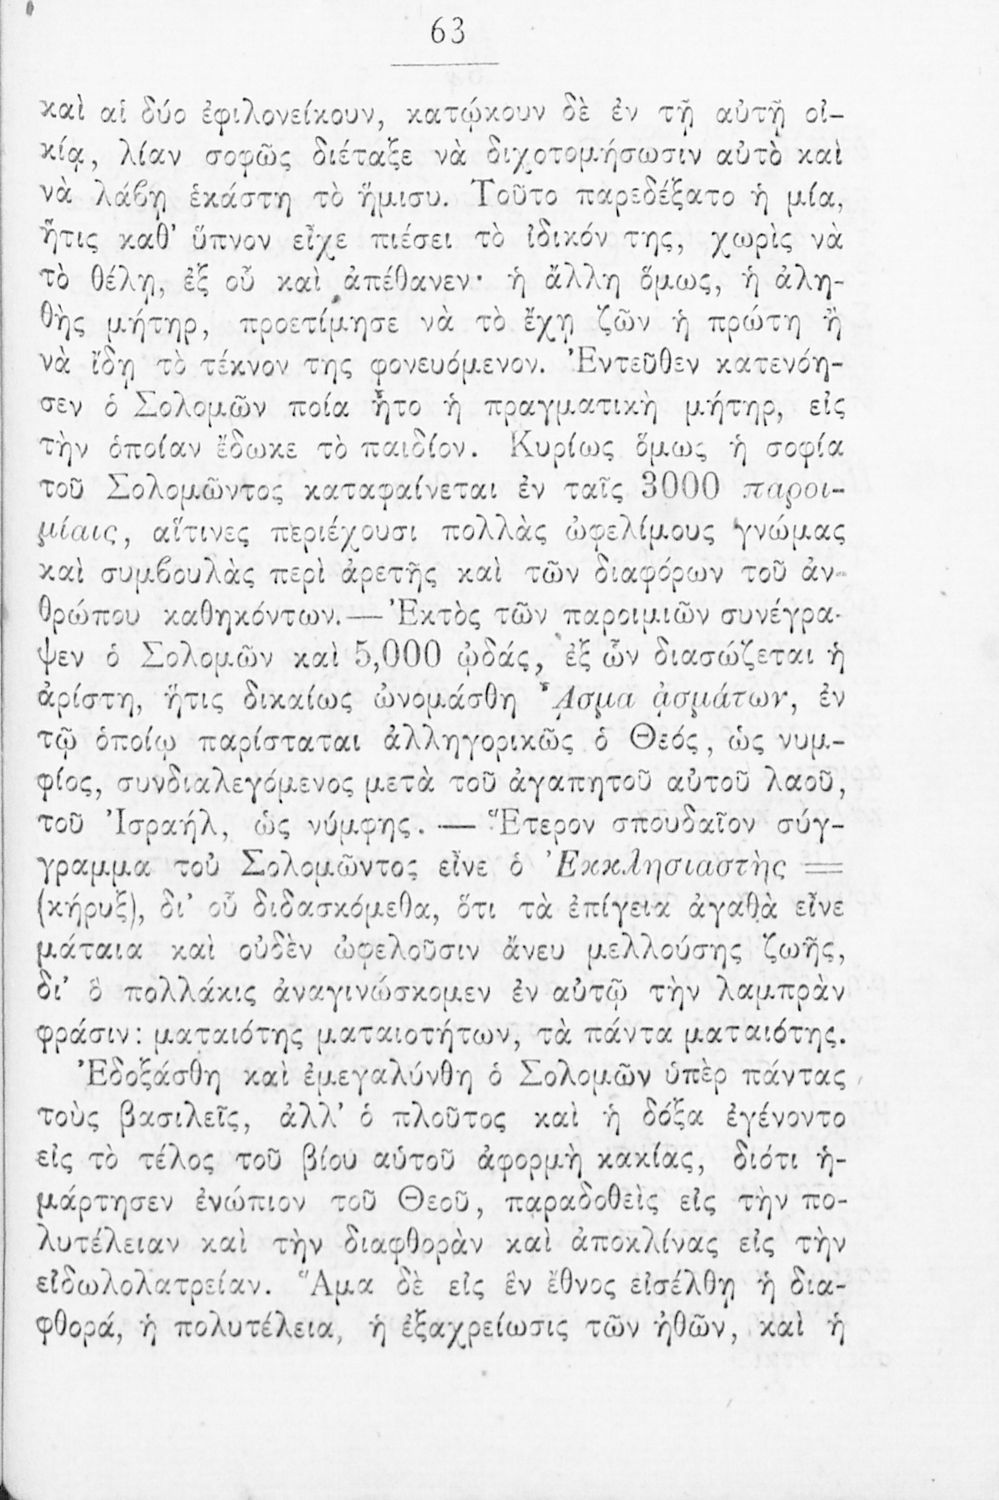 63
καὶ αἱ δύο ἐφιλονείκουν, κατῴκουν δὲ ἐν τῇ αὐτῇ οἰ-
κίᾳ, λίαν σοφῶς διέταξε νὰ διχοτομήσωσιν αὐτὸ καὶ
νὰ λάβῃ ἑκάστη τὸ ἥμισυ. Τοῦτο παρεδέξατο ἡ μία,
ἥτις καθ' ὕπνον εἶχε πιέσει τὸ ἰδικόν της, χωρὶς νὰ
τὸ θέλῃ, ἐξ οὗ καὶ ἀπέθανεν· ἡ ἄλλη ὅμως, ἡ ἀλη-
θὴς μήτηρ, προετίμησε νὰ τὸ ἔχῃ ζῶν ἡ πρώτη ἢ
νὰ ἴδῃ τὸ τέκνον της φονευόμενον. Ἐντεῦθεν κατενόη-
σεν ὁ Σολομῶν ποία ἦτο ἡ πραγματικὴ μήτηρ, εἰς
τὴν ὁποίαν ἔδωκε τὸ παιδίον. Κυρίως ὅμως ἡ σοφία
τοῦ Σολομῶντος καταφαίνεται ἐν ταῖς 3000 παροι-
μίαις, αἵτινες περιέχουσι πολλὰς ὠφελίμους γνώμας
καὶ συμβουλὰς περὶ ἀρετῆς καὶ τῶν διαφόρων τοῦ ἀν-
θρώπου καθηκόντων.— Ἐκτὸς τῶν παροιμιῶν συνέγρα-
ψεν ὁ Σολομῶν καὶ 5,000 ᾠδάς, ἐξ ὧν διασώζεται ἡ
ἀρίστη, ἥτις δικαίως ὠνομάσθη ᾎσμα ᾀσμάτων, ἐν
τῷ ὁποίῳ παρίσταται ἀλληγορικῶς ὁ Θεός, ὡς νυμ-
φίος, συνδιαλεγόμενος μετὰ τοῦ ἀγαπητοῦ αὐτοῦ λαοῦ,
τοῦ Ἰσραήλ, ὡς νύμφης. — Ἕτερον σπουδαῖον σύγ-
γραμμα τοῦ Σολομῶντος εἶνε ὁ Ἐκκλησιαστὴς =
(κήρυξ), δι' οὗ διδασκόμεθα, ὅτι τὰ ἐπίγεια ἀγαθὰ εἶνε
μάταια καὶ οὐδὲν ὠφελοῦσιν ἄνευ μελλούσης ζωῆς,
δι' ὃ πολλάκις ἀναγινώσκομεν ἐν αὐτῷ τὴν λαμπρὰν
φράσιν: ματαιότης ματαιοτήτων, τὰ πάντα ματαιότης.
Ἐδοξάσθη καὶ ἐμεγαλύνθη ὁ Σολομῶν ὑπὲρ πάντας
τοὺς βασιλεῖς, ἀλλ' ὁ πλοῦτος καὶ ἡ δόξα ἐγένοντο
εἰς τὸ τέλος τοῦ βίου αὑτοῦ ἀφορμὴ κακίας, διότι ἡ-
μάρτησεν ἐνώπιον τοῦ Θεοῦ, παραδοθεὶς εἰς τὴν πο-
λυτέλειαν καὶ τὴν διαφθορὰν καὶ ἀποκλίνας εἰς τὴν
εἰδωλολατρείαν. Ἅμα δὲ εἰς ἓν ἔθνος εἰσέλθῃ ἡ δια-
φθορά, ἡ πολυτέλεια, ἡ ἐξαχρείωσις τῶν ἠθῶν, καὶ ἡ